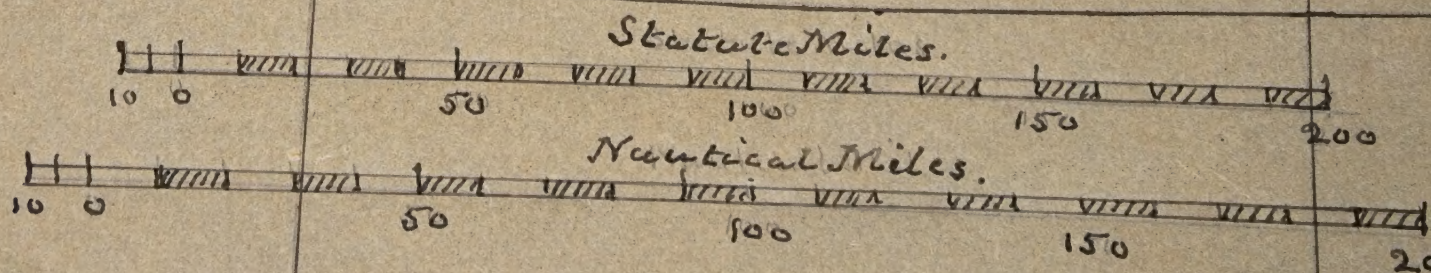 Statute Miles.
10 0 50 100 150 200
Nautical Miles.
10 0 50 100 150 20